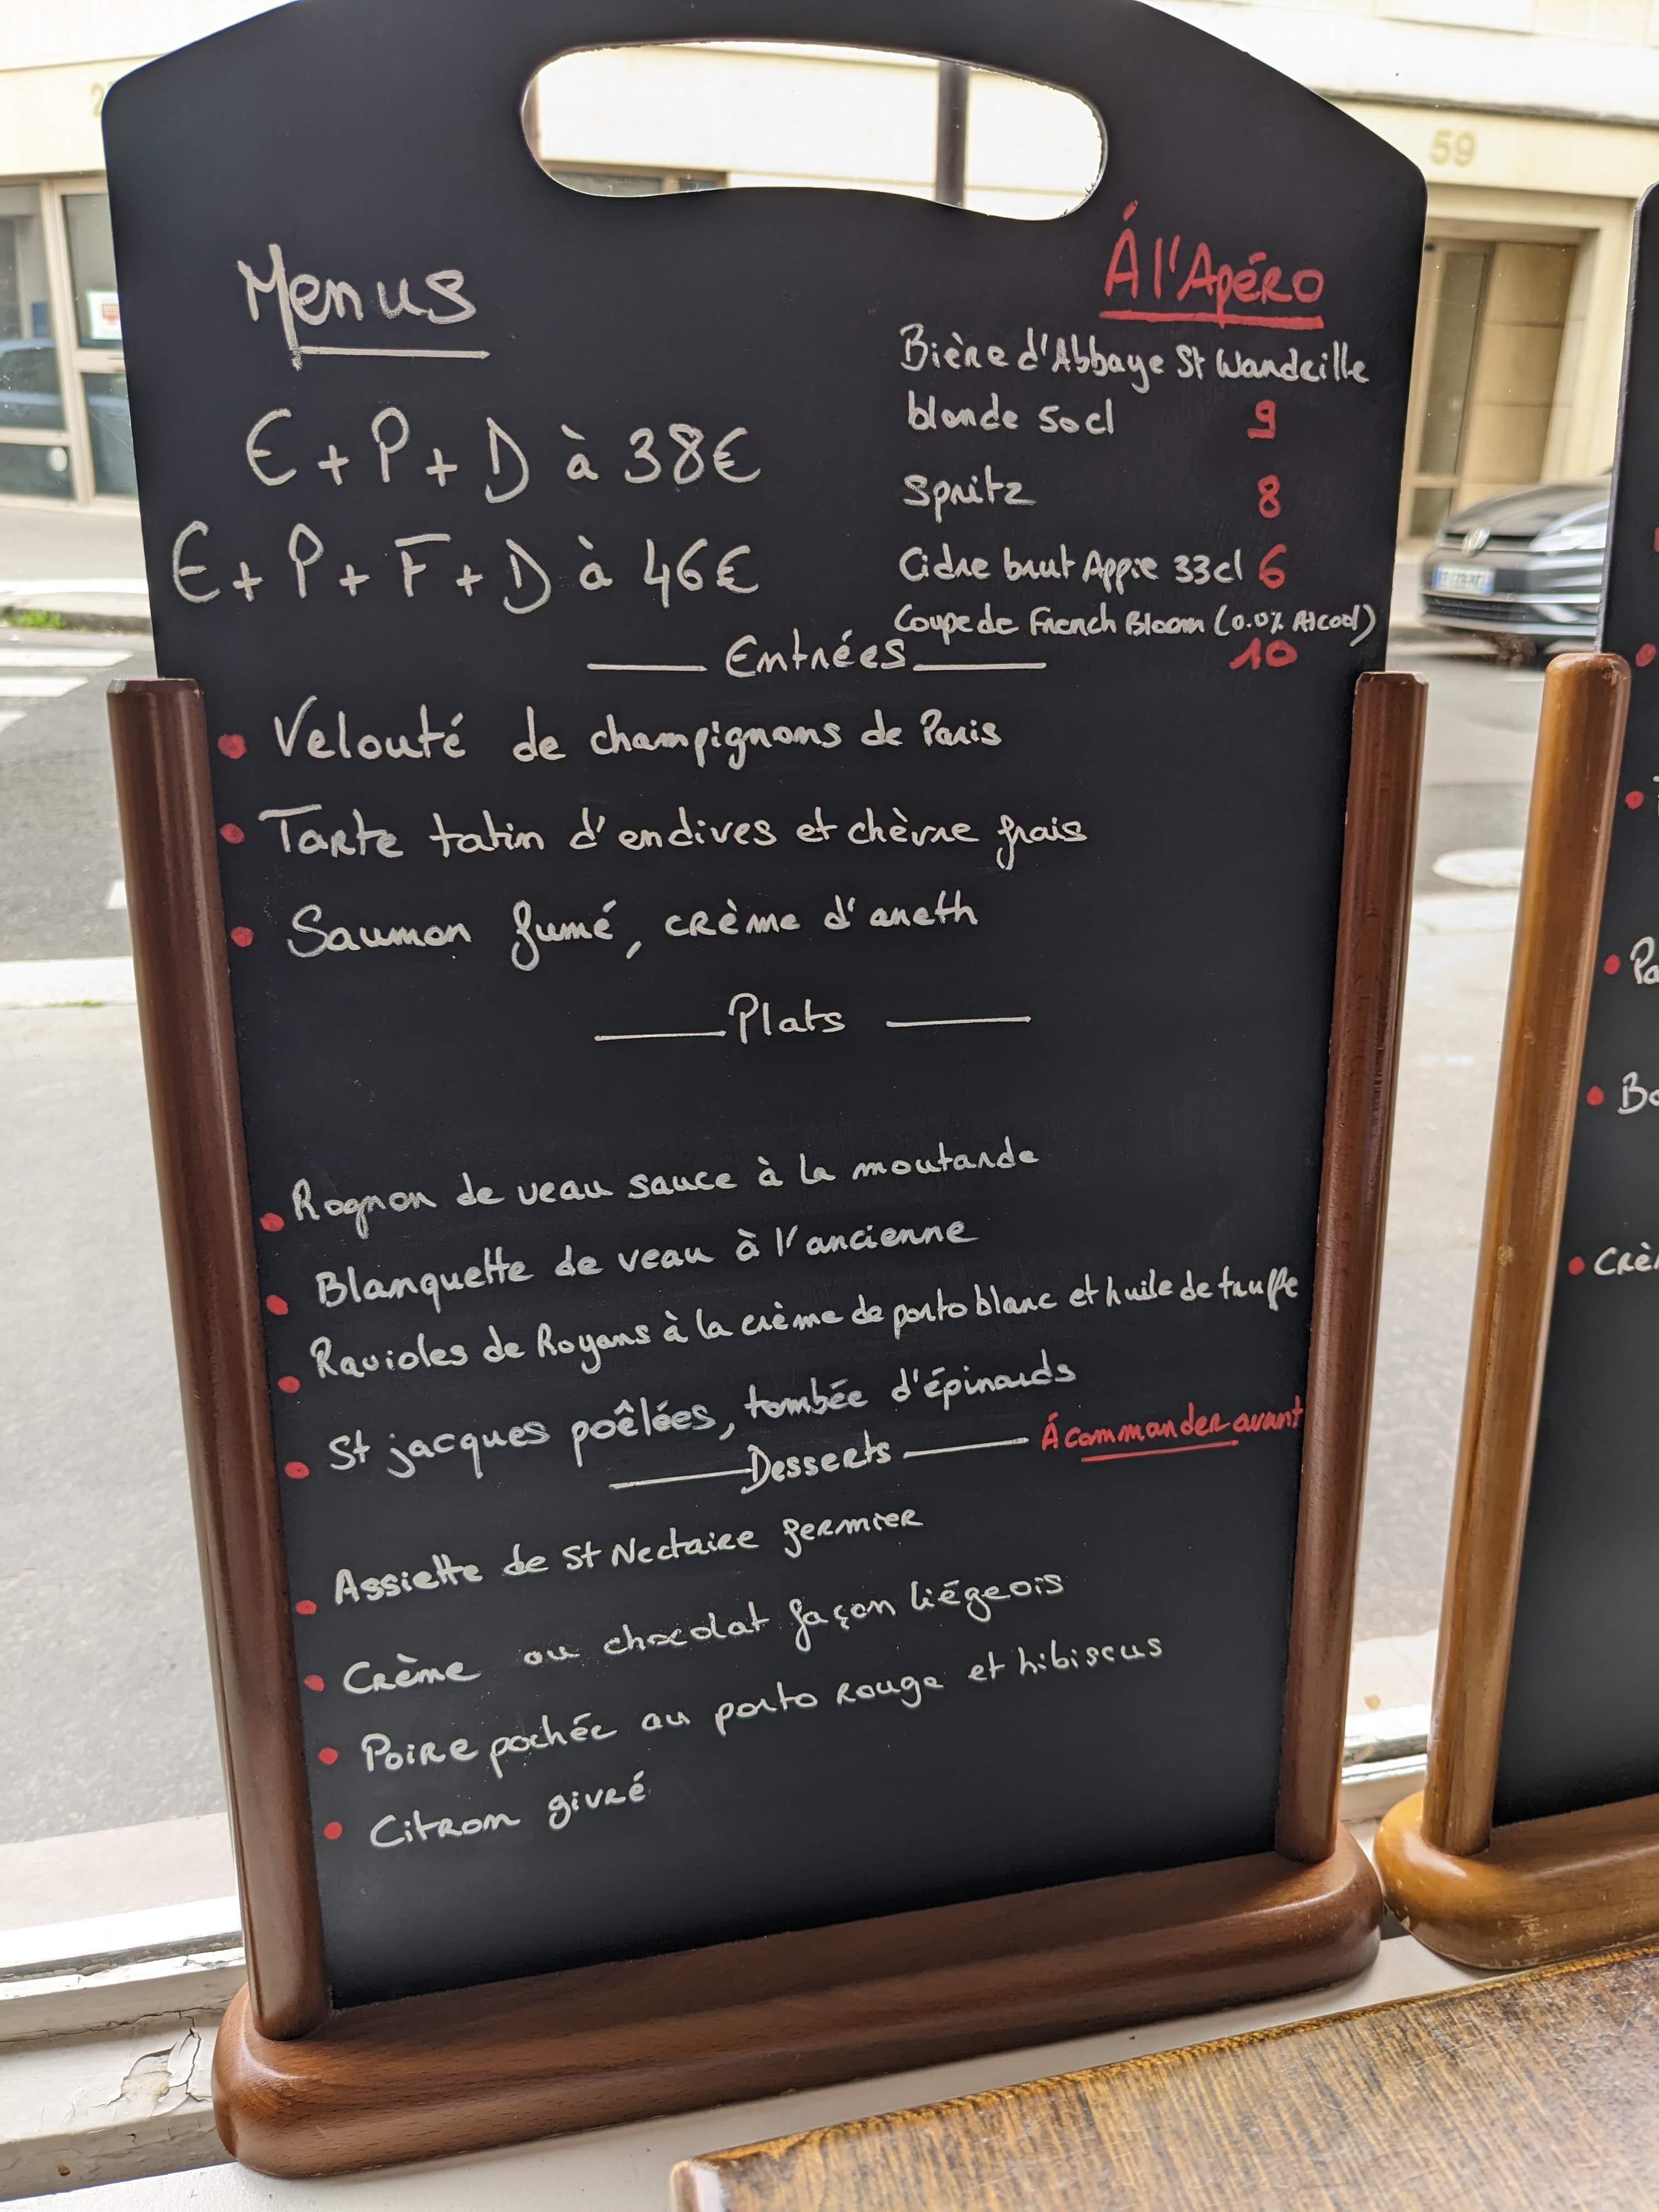 Menus
E + P + D à 38€
E + P + F + D à 46€
Á l'Apéro
Bière d'Abbaye St Wandrille
blonde 50cl 9
Spritz 8
Cidre brut Appie 33cl 6
Coupe de French Bloom (0.0% Alcool)
10
Entrées
• Velouté de champignons de Paris
• Tarte tatin d'endives et chèvre frais
• Saumon fumé, crème d'aneth
Plats
• Rognon de veau sauce à la moutarde
• Blanquette de veau à l'ancienne
• Ravioles de Royans à la crème de porto blanc et huile de truffe
• St jacques poêlées, tombée d'épinards
Desserts Á commander avant
• Assiette de St Nectaire fermier
• Crème au chocolat façon liégeois
• Poire pochée au porto rouge et hibiscus
• Citron givré
59
• Po
• Bo
• Crè